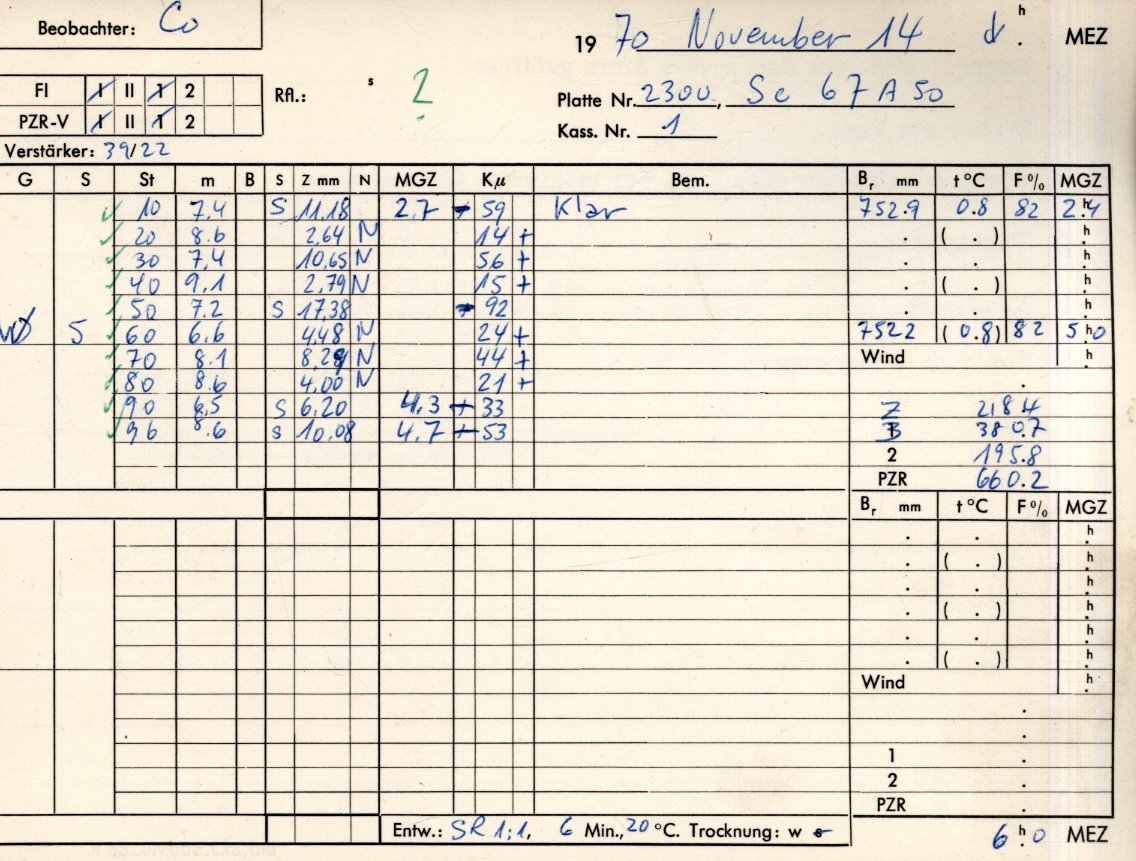 Beobachter: Co
19 70 November 14 d h . MEZ
FI I II 1 2 Rfl.: s ?
PZR-V I II 1 2
Platte Nr. 2300, Se 67 A 50
Kass. Nr. 1
Verstärker: 39/22
G S St m B S Z mm N MGZ Kµ Bem. Br mm t °C F % MGZ
10 7,4 S 11,18 2,7 - 59 Klar 752.9 0.8 82 2.h4
20 8.6 2,64 N 14 + . ( . ) h
30 7,4 10,65 N 56 + . . h
40 9.1 2,79 N 15 + . ( . ) h
50 7.2 S 17,38 - 92 . . h
S 60 6.6 4,48 N 24 + 752.2 (0.8) 82 5.h0
70 8.1 8,29 N 44 + Wind h
80 8.6 4.00 N 21 + .
90 6,5 S 6,20 4.3 - 33 Z 218.4
96 8.6 S 10,08 4.7 - 53 380.7
2 195.8
PZR 660.2
Br mm t °C F % MGZ
. . h
. ( . ) h
. . h
. ( . ) h
. . h
. ( . ) h
Wind h
.
.
1 .
2 .
PZR .
Entw.: SR 1:1, 6 Min., 20 °C. Trocknung: w s
6 h.0 MEZ